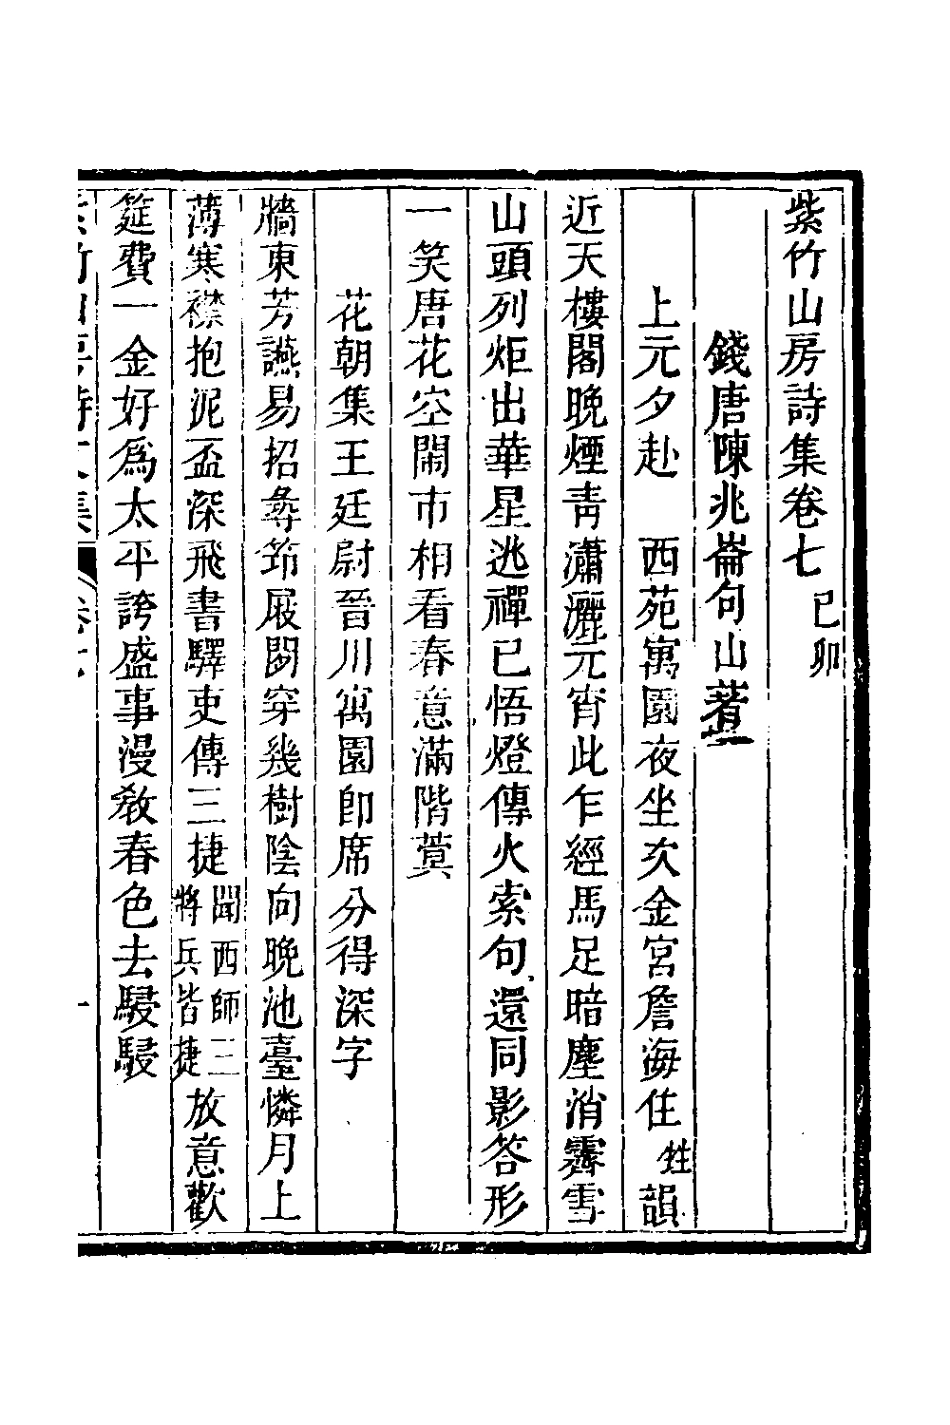 紫竹山房詩集卷七己卯
錢唐陳兆崙句山著
上元夕赴　西苑寓園夜坐次金宮詹海住甡韻
近天樓閣晚煙靑瀟灑元宵此乍經馬足暗塵消霽雪
山頭列炬出華星逃禪已悟燈傳火索句還同影答形
一笑唐花空鬧市相看春意滿階蓂
花朝集王廷尉晉川寓園卽席分得深字
牆東芳讌易招尋筇屐閒穿幾樹陰向晚池臺憐月上
薄寒襟抱泥盃深飛書驛吏傳三捷聞西師三將兵皆捷放意歡
筵費一金好爲太平誇盛事漫敎春色去駸駸